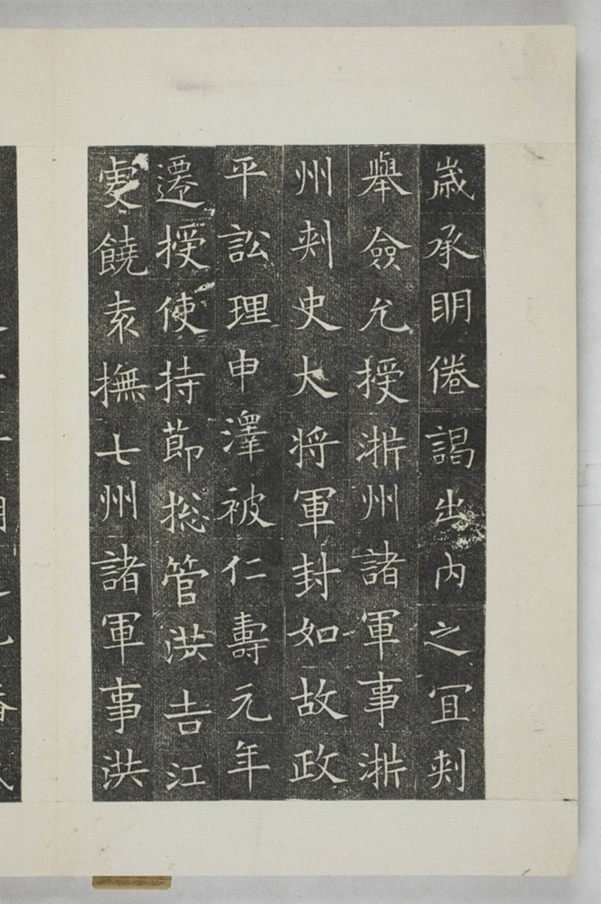 歳承明倦謁出内之冝刾
舉僉允授淅州諸軍事淅
州刾史大将軍封如故政
平訟理申澤被仁壽元年
遷授使持節捴管洪吉江
虔饒袁撫七州諸軍事洪